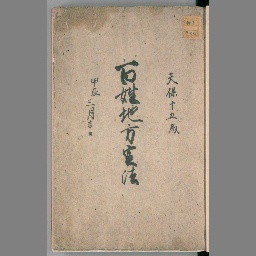 天保十五歳
百姓地方定法
甲辰三月吉日